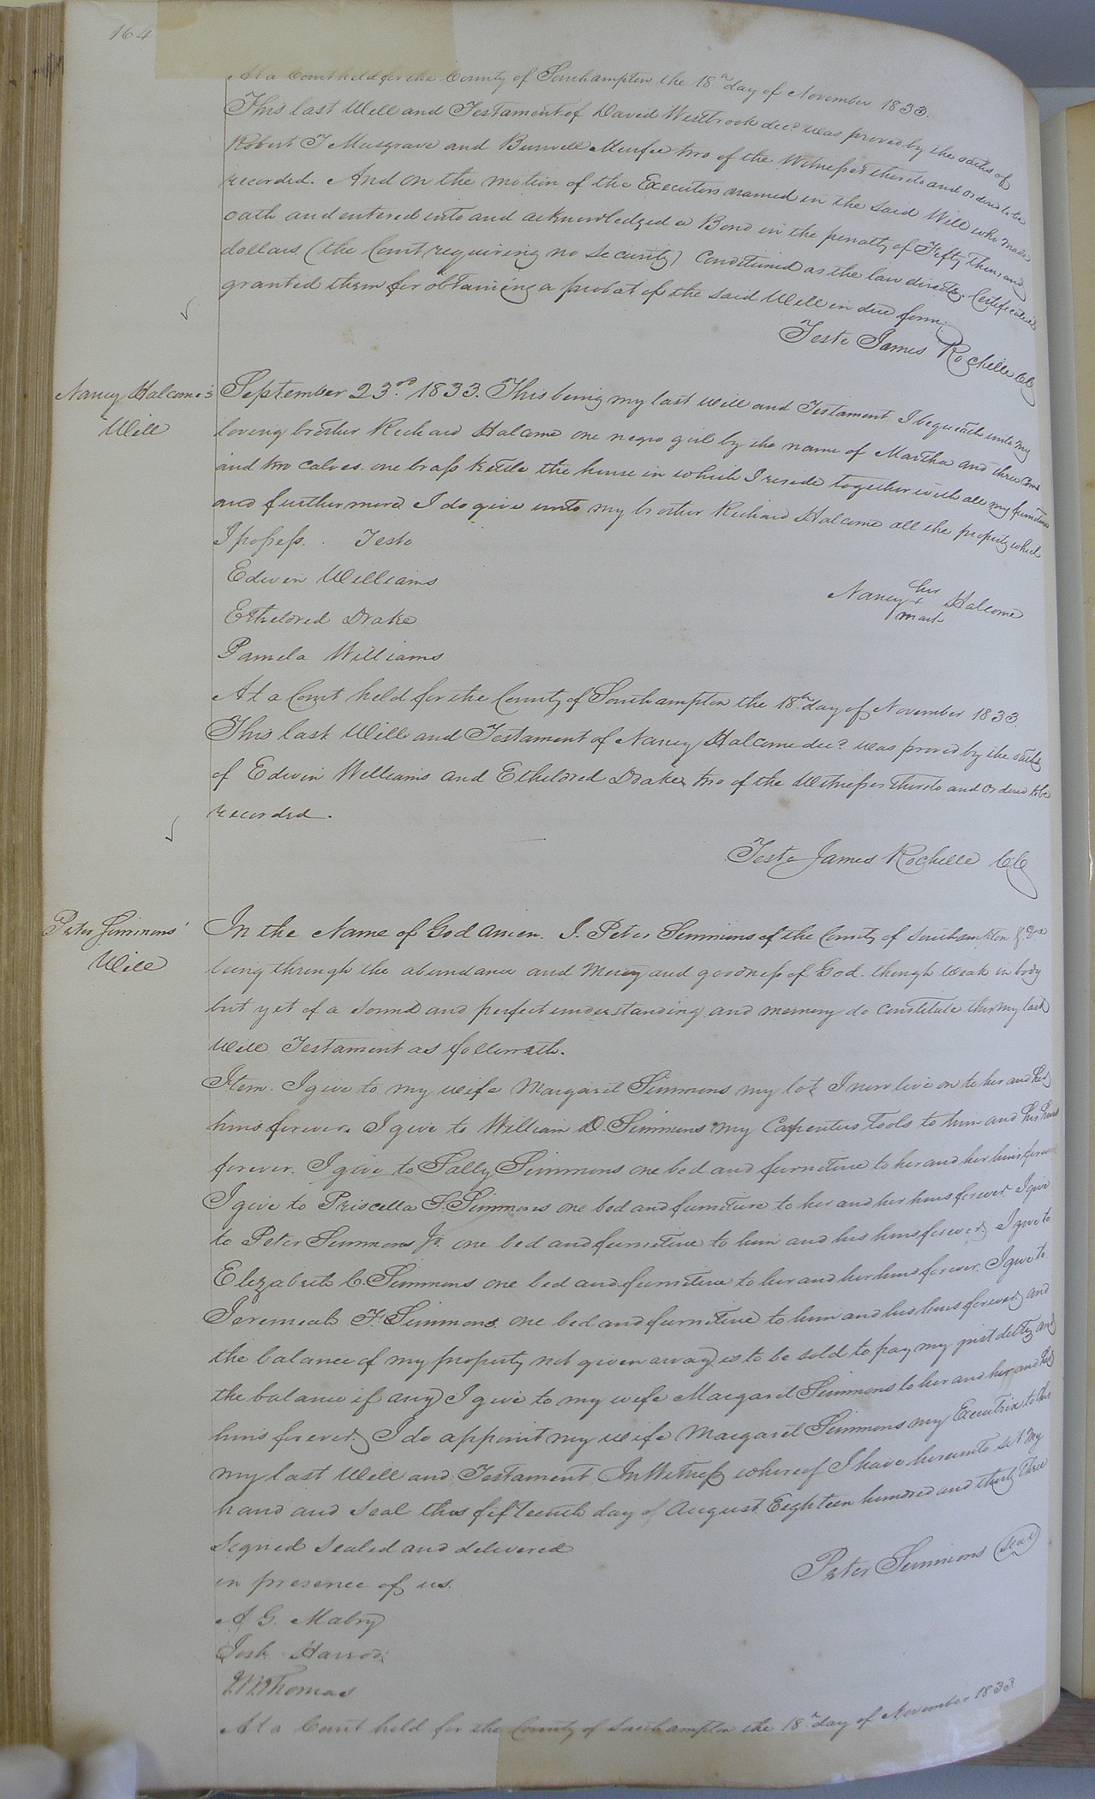 164
At a Court held for the County of Southampton the 18th day of November 1833.
This last Will and Testament of David Westbrook decd was proved by the oaths of
Robert T Musgrave and Burwell two of the Witnesses thereto and ordered to be
recorded. And on the motion of the Executors named in the said Will who made
oath and entered into and acknowledged a Bond in the penalty of Fifty thousand
dollars (the Court requiring no security) Conditioned as the law directs. Certificate is
granted them for obtaining a probat of the said Will in due form.
Teste James Rochelle CC
Nancy Halcome's
Will
September 23rd 1833. This being my last will and Testament I bequeath unto my
loving brother Richard Halcome one negro girl by the name of Martha and three Cows
and two calves one brass kettle the house in which I reside together with all my furniture
and furthermore I do give unto my brother Richard Halcome all the property which
I possess. Teste
Nancy her Halcome
+
mark
Edwin Williams
Etheldred Drake
Pamela Williams
At a Court held for the County of Southampton the 18th day of November 1833.
This last Will and Testament of Nancy Halcome decd was proved by the oaths
of Edwin Williams and Etheldred Drake two of the Witnesses thereto and Ordered to be
recorded.
Teste James Rochelle CC
Peter Simmons'
Will
In the Name of God Amen. I. Peter Simmons of the County of Southampton & Va
being through the abundance and Mercy and goodness of God. though weak in body
but yet of a sound and perfect understanding and memory do Constitute this my last
Will Testament as followeth.
Item. I give to my wife Margaret Simmons my lot I now live on to her and her
heirs forever. I give to William D. Simmons my Carpenters Tools to him and his heirs
forever. I give to Sally Simmons one bed and furniture to her and her heirs forever
I give to Priscella S. Simmons one bed and furniture to her and her heirs forever I give
to Peter Simmons Jr. one bed and furniture to him and his heirs forever. I give to
Elizabeth C. Simmons one bed and furniture to her and her heirs forever. I give to
Jeremiah F. Simmons one bed and furniture to him and his heirs forever, and
the balance of my property not given away is to be sold to pay my just debts, and
the balance if any I give to my wife Margaret Simmons to her and her and her
heirs forever. I do appoint my wife Margaret Simmons my Executrix to this
my last Will and Testament In Witness whereof I have hereunto set my
hand and Seal this fifteenth day of August Eighteen hundred and thirty three
Signed Sealed and delivered
Peter Simmons (Seal)
in presence of us.
A. G. Mabry
Thomas
At a Court held for the County of Southampton the 18th day of November 1833.